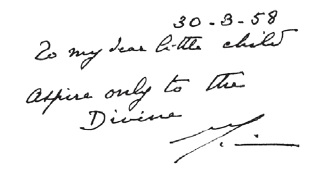 30-3-58
To my dear little child
Aspire only to the
Divine